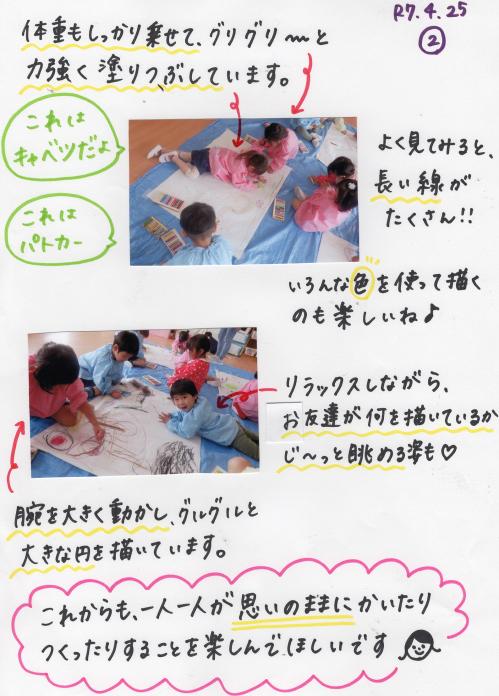 R7.4.25
②
体重もしっかり乗せて、グリグリ〜と
力強く塗りつぶしています。
これは
キャベツだよ
これは
パトカー
よく見てみると、
長い線が
たくさん!!
いろんな色を使って描く
のも楽しいね♪
リラックスしながら、
お友達が何を描いているか
じ〜っと眺める姿も♡
腕を大きく動かし、グルグルと
大きな円を描いています。
これからも、一人一人が思いのままにかいたり
つくったりすることを楽しんでほしいです